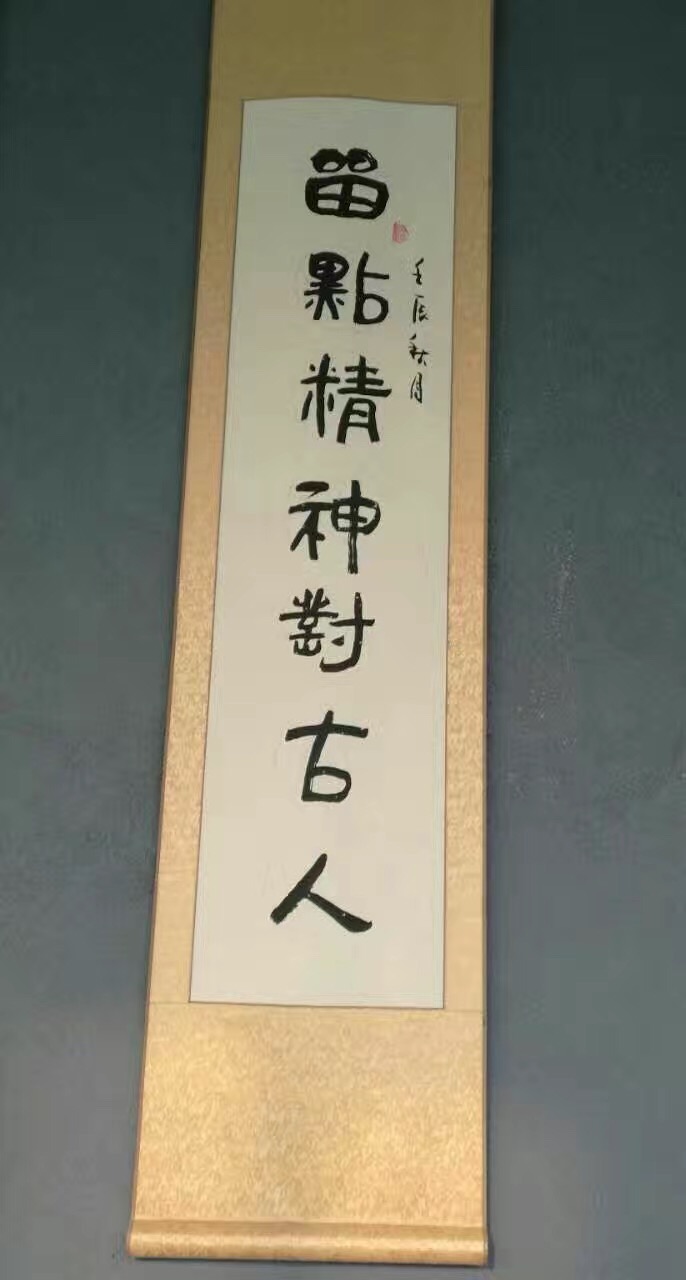 壬辰秋月
留點精神對古人